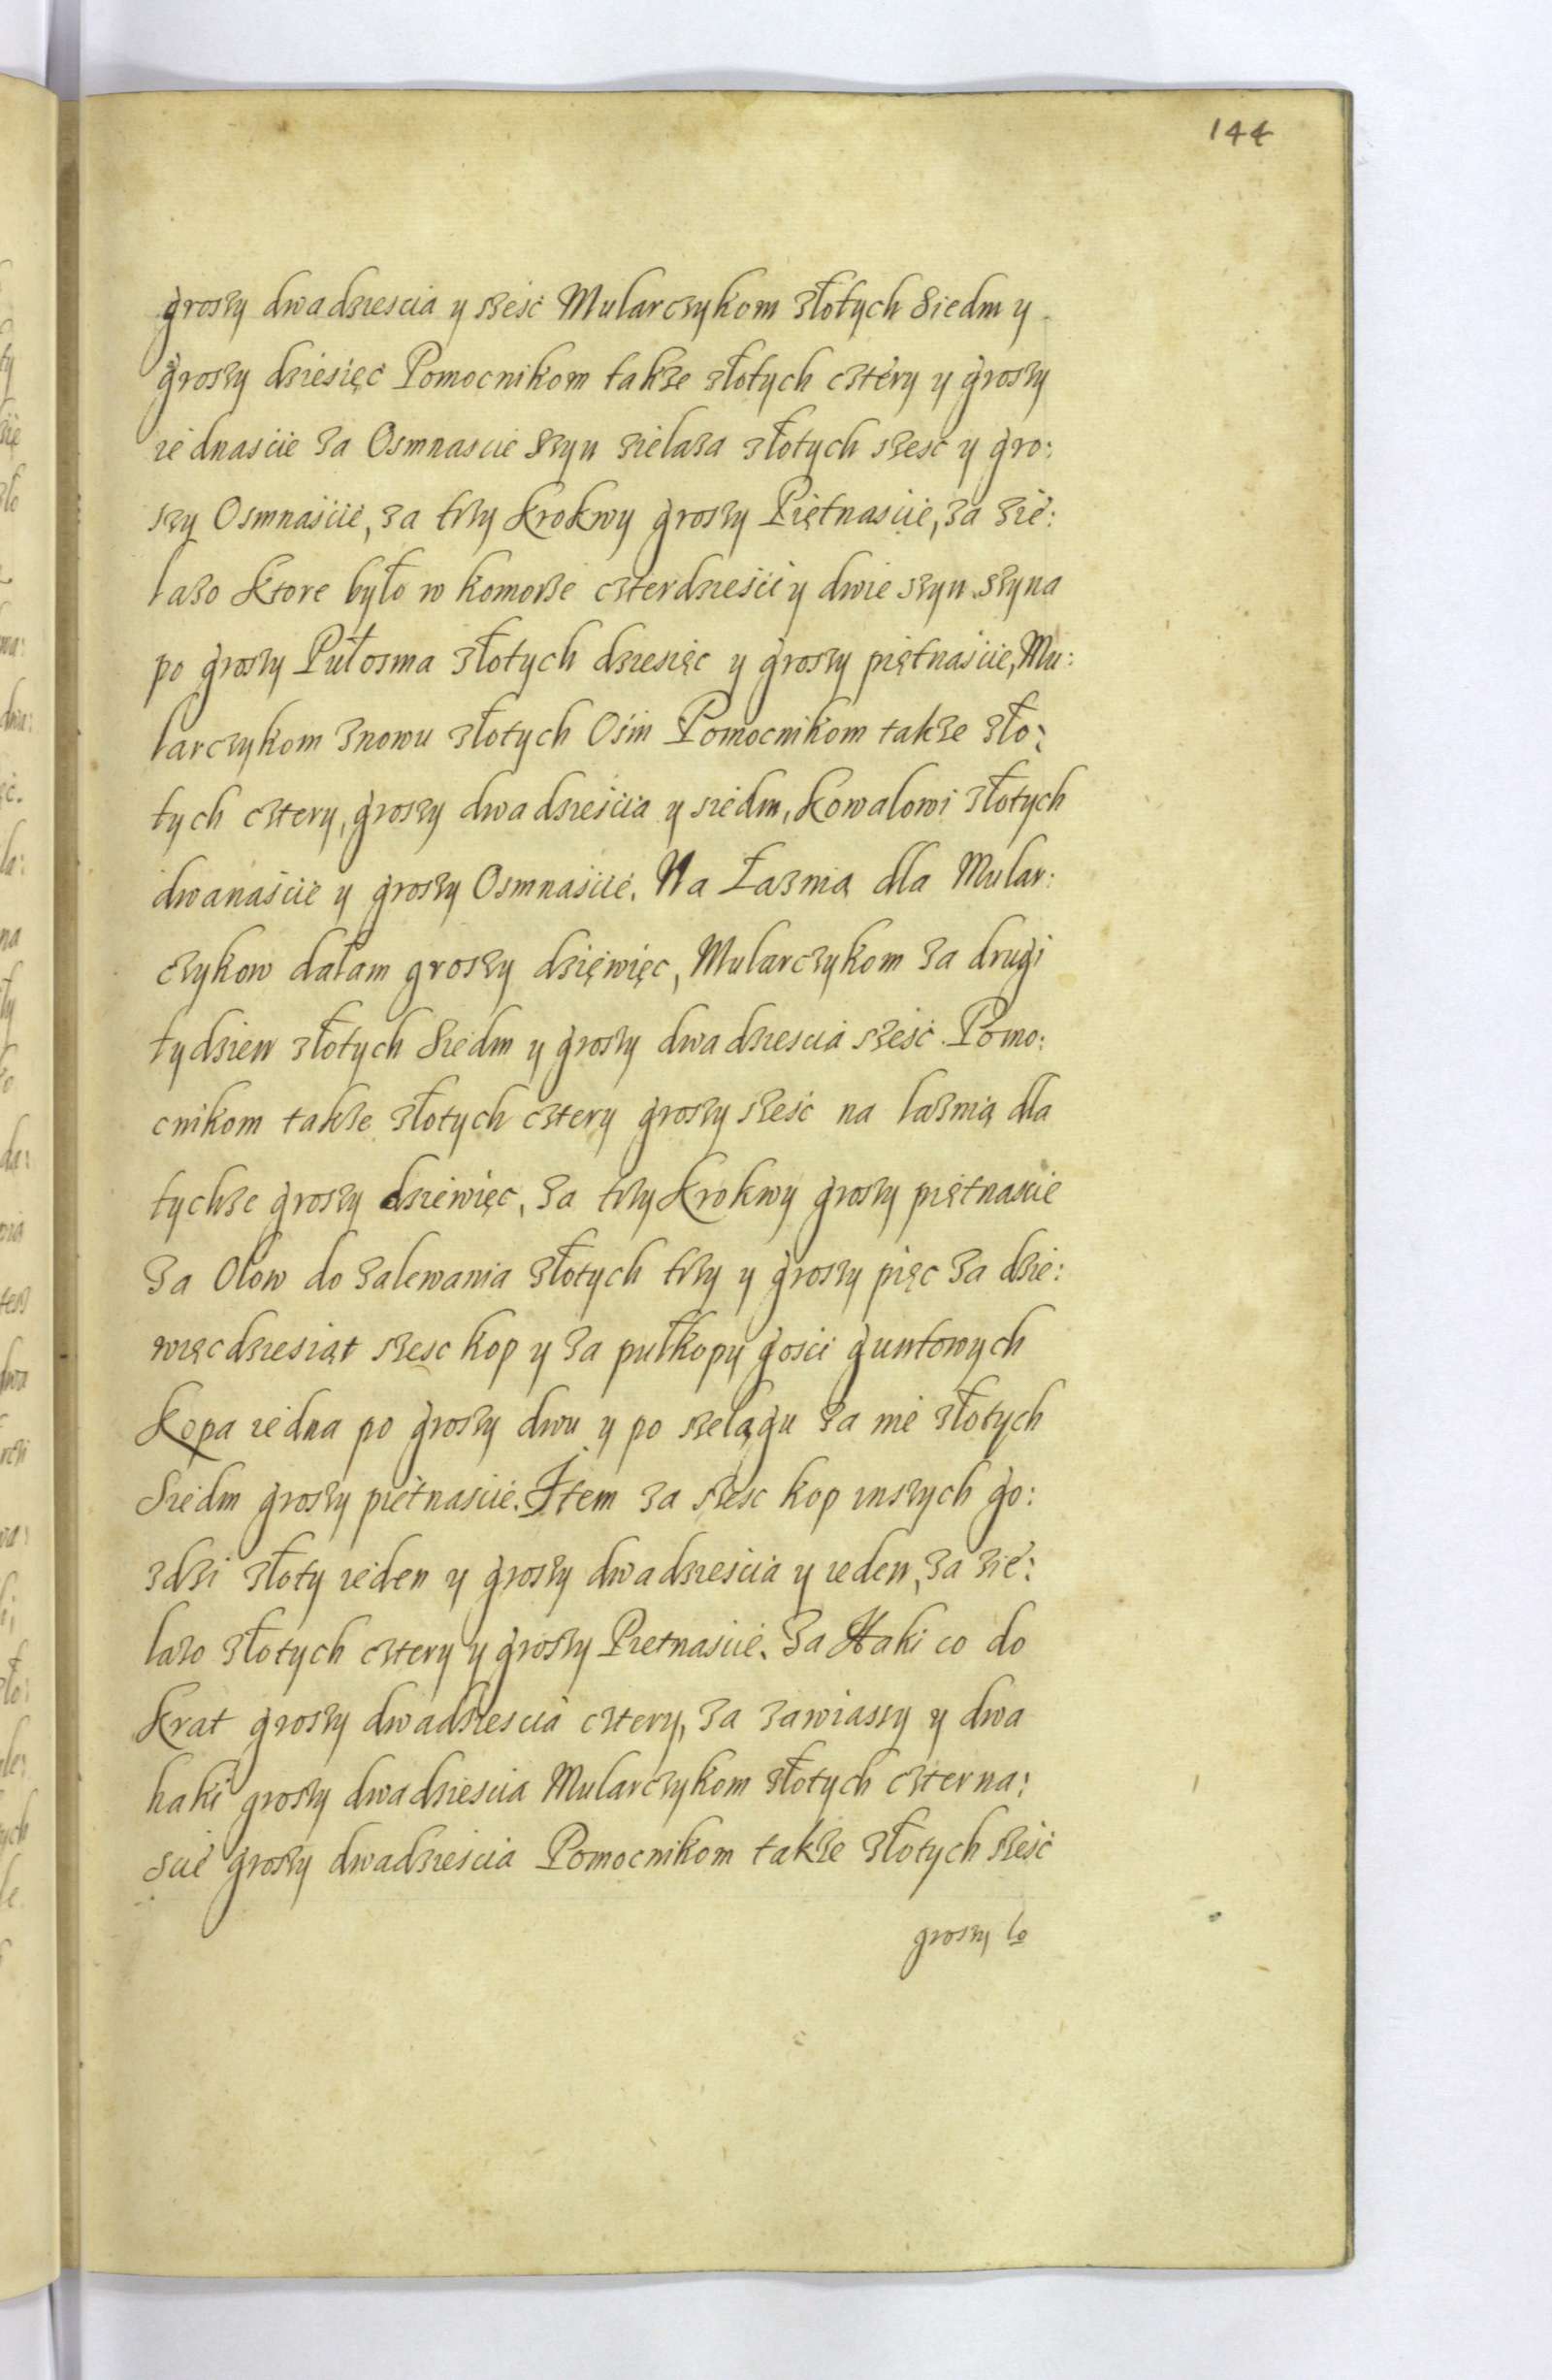 144
groszy dwadziescia y szesć Mularczykom złotych Siedm y
groszy dziesięć Pomocnikom także złotych cztery y groszy
iednascie za Osmnascie Szyn zielaza złotych szesć y gro:
szy Osmnaście, za trzy Krokwy groszy Piętnaście, za zie:
lazo Ktore było w komorze czterdzieści y dwie szyn szyna
po groszy Pułosma złotych dziesięc y groszy piętnaście, Mu:
larczykom znowu złotych Ośm Pomocnikom także zło:
tych cztery, groszy dwadzieścia y siedm, Kowalowi złotych
dwanaście y groszy Osmnaście. Na Łaznią dla Mular:
czykow dałam groszy dzięwięc, Mularczykom za drugi
tydzien złotych Siedm y groszy dwadziescia sześć. Pomo:
cnikom także złotych cztery groszy sześć na laznią dla
tychże groszy dziewięc, za trzy Krokwy groszy piętnascie
za Olow do zalewania złotych trzy y groszy pięc za dzie:
więcdziesiąt szesc kop y za pułkopy gosci guntowych
Kopa iedna po groszy dwu y po szelągu za nie złotych
Siedm groszy pietnaście. Item za szesc kop inszych go:
zdzi złoty ieden y groszy dwadzieścia y ieden, za zie:
lazo złotych cztery y groszy Pietnaście. Za Haki co do
Krat groszy dwadziescia cztery, za zawiassy y dwa
haki groszy dwadziescia Mularczykom złotych czterna:
scie groszy dwadzieścia Pomocnikom także złotych sześć
groszy